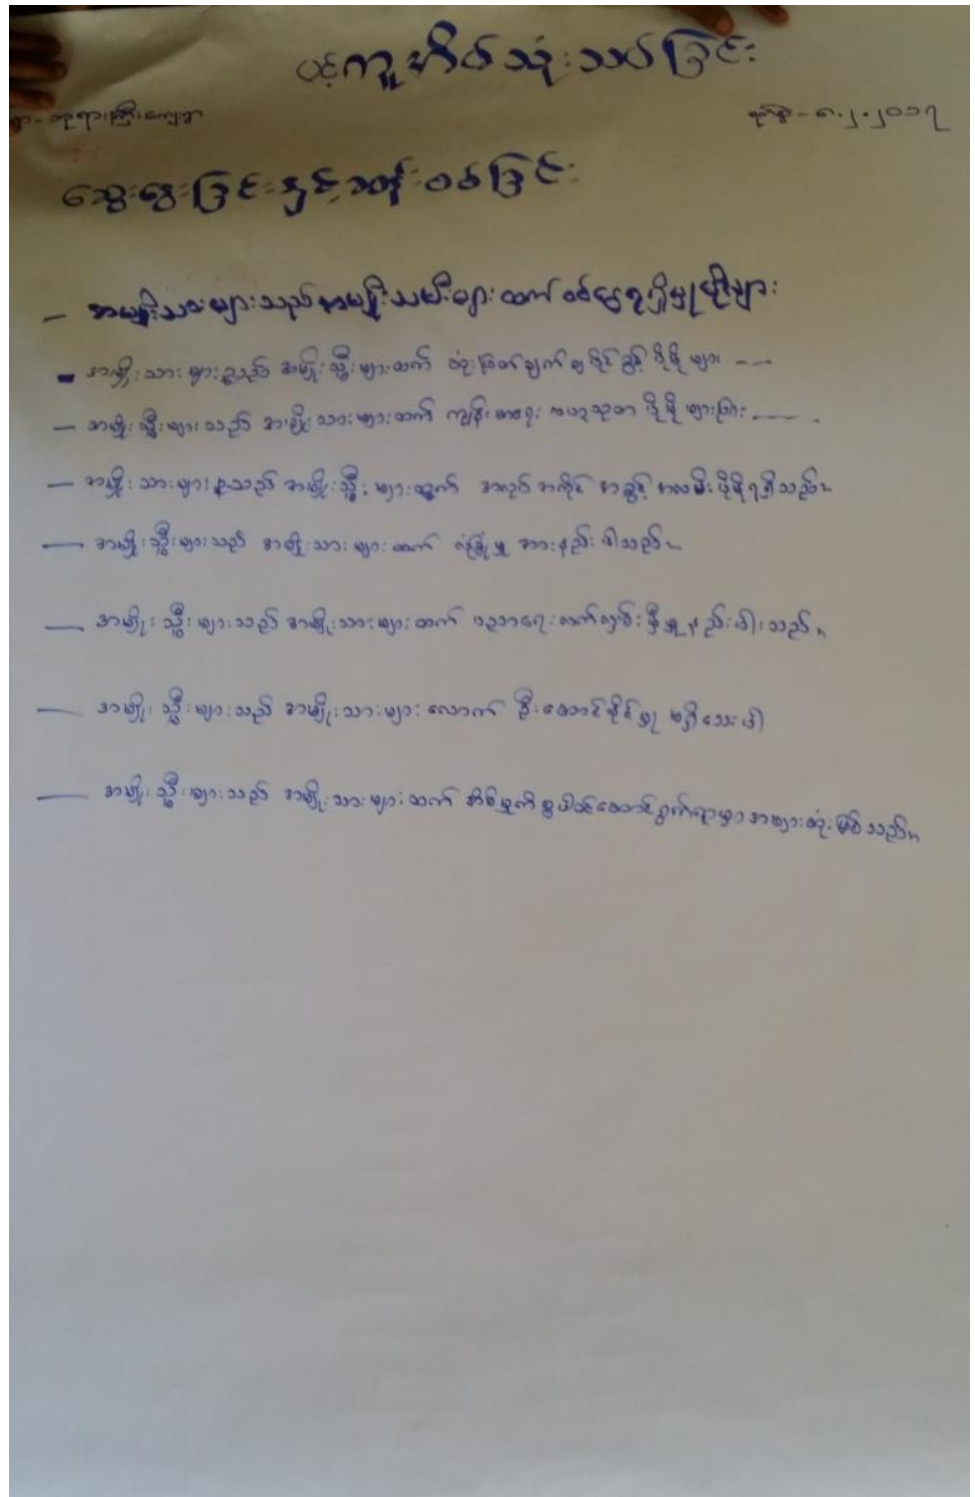 ပင့်ကူအိမ်သုံးသပ်ခြင်း
ရွာ - ဘုရားကြီးကျေးရွာ ရက်စွဲ - ၈.၂.၂၀၁၇
ဆွေးနွေးခြင်းနှင့်အတန်းဝင်ခြင်း
- အမျိုးသားများသည် အမျိုးသမီးများထက် ဝင်ငွေရရှိမှုပိုများ
- အမျိုးသားများသည် အမျိုးသ္မီးများထက် ဆုံးဖြတ်ချက်ချပိုင်ခွင့် ပိုမိုများ ---
- အမျိုးသ္မီးများသည် အမျိုးသားများထက် ကျန်းမာရေး ဗဟုသုတ ပိုမိုများခြင်း ----
- အမျိုးသားများသည် အမျိုးသ္မီးများထက် အလုပ်အကိုင် အခွင့်အလမ်းပိုမိုရရှိသည်။
- အမျိုးသ္မီးများသည် အမျိုးသားများထက် လုံခြုံမှု အားနည်းပါသည်။
- အမျိုးသ္မီးများသည် အမျိုးသားများထက် ပညာရေးလက်လှမ်းမှီမှုနည်းပါးသည်။
- အမျိုးသ္မီးများသည် အမျိုးသားများလောက် ဦးဆောင်နိုင်မှု မရှိသေးပါ
- အမျိုးသ္မီးများသည် အမျိုးသားများထက် အိမ်မှုကိစ္စဝိုင်းဆောင်ရွက်ရာမှာအများဆုံးဖြစ်သည်။